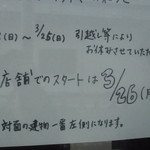 (日)～3/25(日) 引越し等により
お休みさせていただ
店舗でのスタートは3/26(月
対面の建物一番左側になります。